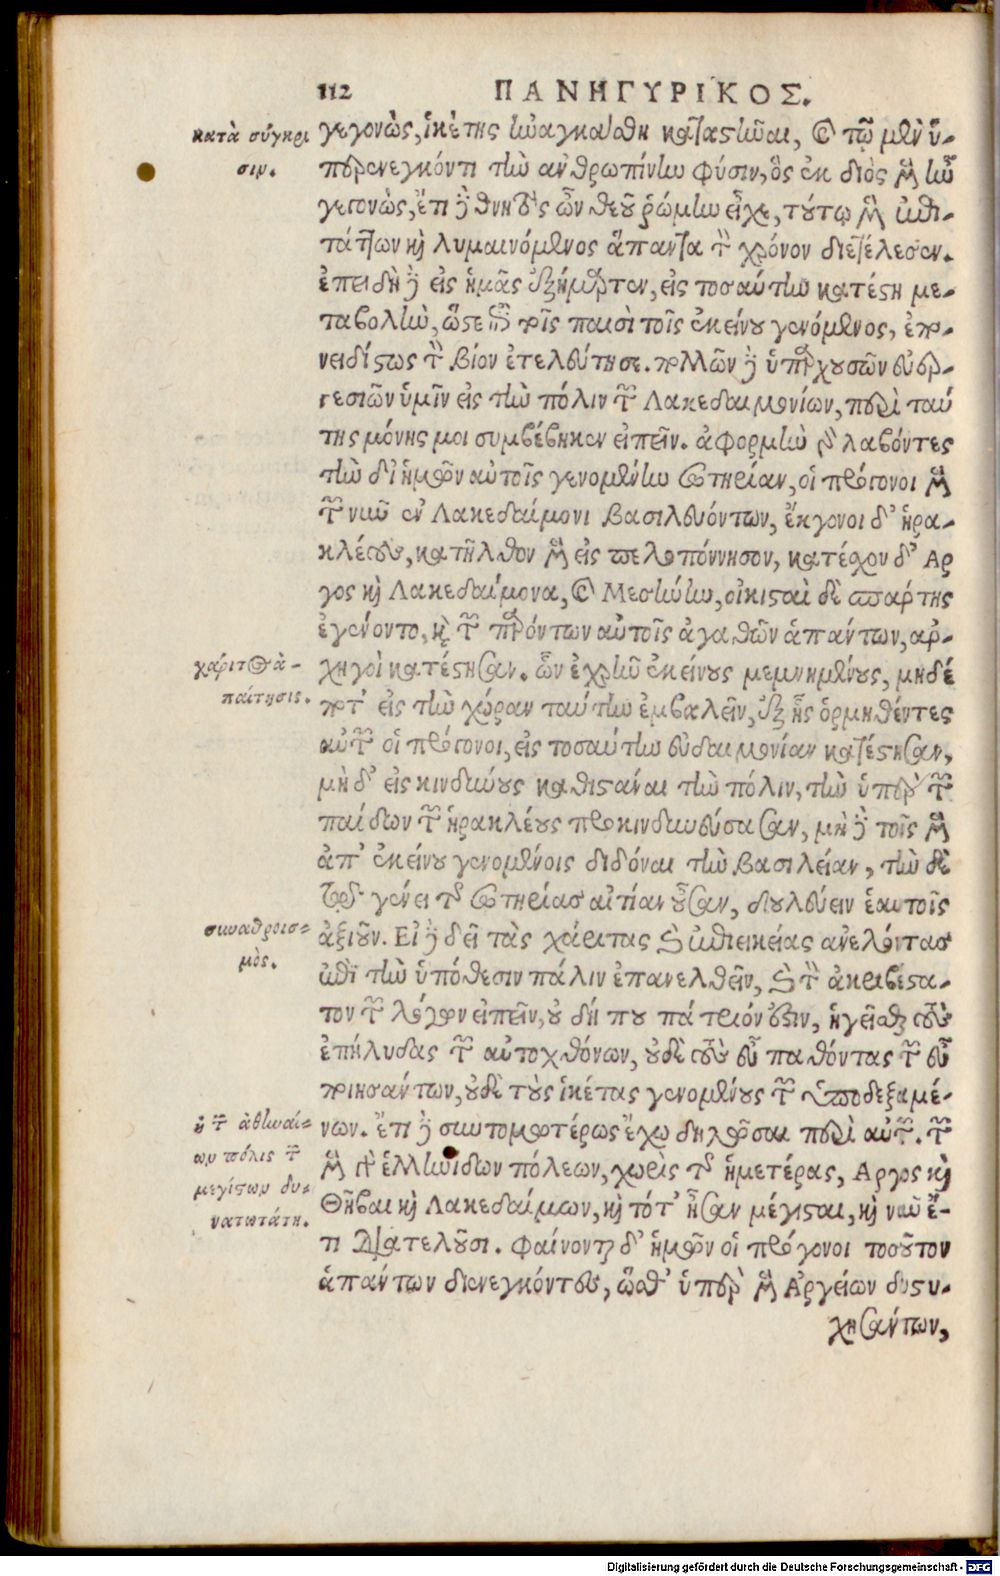 112 ΠΑΝΗΓΥΡΙΚΟΣ.
κατὰ σύγκρι
σιν.
γεγονὼς, ἱκέτης ἠναγκάσθη καταστῆναι, καὶ τῷ μὲν ὑ-
περενεγκόντι τὴν ἀνθρωπίνην φύσιν, ὃς ἐκ διὸς μὲν ἦν
γεγονὼς, ἔτι δὲ θνητὸς ὢν θεοῦ ῥώμην εἶχε, τούτῳ μὲν ἐπι-
τάττων καὶ λυμαινόμενος ἅπαντα τὸν χρόνον διετέλεσεν.
ἐπειδὴ δὲ εἰς ἡμᾶς ἐξήμαρτεν, εἰς τοσαύτην κατέστη με-
ταβολὴν, ὥστε ἐπὶ τοῖς παισὶ τοῖς ἐκείνου γενόμενος, ἐπο-
νειδίστως τὸν βίον ἐτελεύτησε. πολλῶν δὲ ὑπαρχουσῶν εὐερ-
γεσιῶν ὑμῖν εἰς τὴν πόλιν τῶν Λακεδαιμονίων, περὶ ταύ
της μόνης μοι συμβέβηκεν εἰπεῖν. ἀφορμὴν γὰρ λαβόντες
τὴν δι' ἡμῶν αὐτοῖς γενομένην σωτηρίαν, οἱ πρόγονοι μὲν
τῶν νῦν ἐν Λακεδαίμονι βασιλευόντων, ἔκγονοι δ' ἡρα-
κλέους, κατῆλθον μὲν εἰς πελοπόννησον, κατέσχον δ' Αρ
γος καὶ Λακεδαίμονα, καὶ Μεσήνην, οἰκισταὶ δὲ σπάρτης
ἐγένοντο, καὶ τῶν παρόντων αὐτοῖς ἀγαθῶν ἁπάντων, ἀρ-
χάριτος ἀ-
παίτησις.
χηγοὶ κατέστησαν. ὧν ἐχρῆν ἐκείνους μεμνημένους, μηδέ
ποτ' εἰς τὴν χώραν ταύτην ἐμβαλεῖν, ἐξ ἧς ὁρμηθέντες
αὐτῶν οἱ πρόγονοι, εἰς τοσαύτην εὐδαιμονίαν κατέστησαν,
μὴ δ' εἰς κινδύνους καθιστάναι τὴν πόλιν, τὴν ὑπὲρ τῶν
παίδων τῶν ἡρακλέους προκινδυνεύσασαν, μὴ δὲ τοῖς μὲν
ἀπ' ἐκείνου γενομένοις διδόναι τὴν βασιλείαν, τὴν δὲ
τῷ γένει τῆς σωτηρίας αἰτίαν οὖσαν, δουλεύειν ἑαυτοῖς
συναθροισ-
μὸς.
ἀξιοῦν. Εἰ δὲ δεῖ τὰς χάριτας καὶ ἐπιεικείας ἀνελόντας
ἐπὶ τὴν ὑπόθεσιν πάλιν ἐπανελθεῖν, καὶ τὸν ἀκριβέστα-
τον τῶν λόγων εἰπεῖν, οὐ δή που πάτριόν ἐστιν, ἡγεῖσθαι τοὺς
ἐπήλυδας τῶν αὐτοχθόνων, οὐδὲ τοὺς εὖ παθόντας τῶν εὖ
ποιησάντων, οὐδὲ τοὺς ἱκέτας γενομένους τῶν ὑποδεξαμέ-
ὅτι τῶν ἀθηναί-
ων πόλις τῶν
μεγίστων δυ-
νατωτάτη.
νων. ἔτι δὲ συντομωτέρως ἔχω δηλῶσαι περὶ αὐτῶν. τῶν
μὲν γὰρ ἑλληνίδων πόλεων, χωρὶς τῆς ἡμετέρας, Αργος καὶ
Θῆβαι καὶ Λακεδαίμων, καὶ τότ' ἦσαν μέγισται, καὶ νῦν ἔ-
τι διατελοῦσι. Φαίνονται δ' ἡμῶν οἱ πρόγονοι τοσοῦτον
ἁπάντων διενεγκόντες, ὥσθ' ὑπὲρ μὲν Ἀργείων δυστυ-
χησάντων,
Digitalisierung gefördert durch die Deutsche Forschungsgemeinschaft - DFG